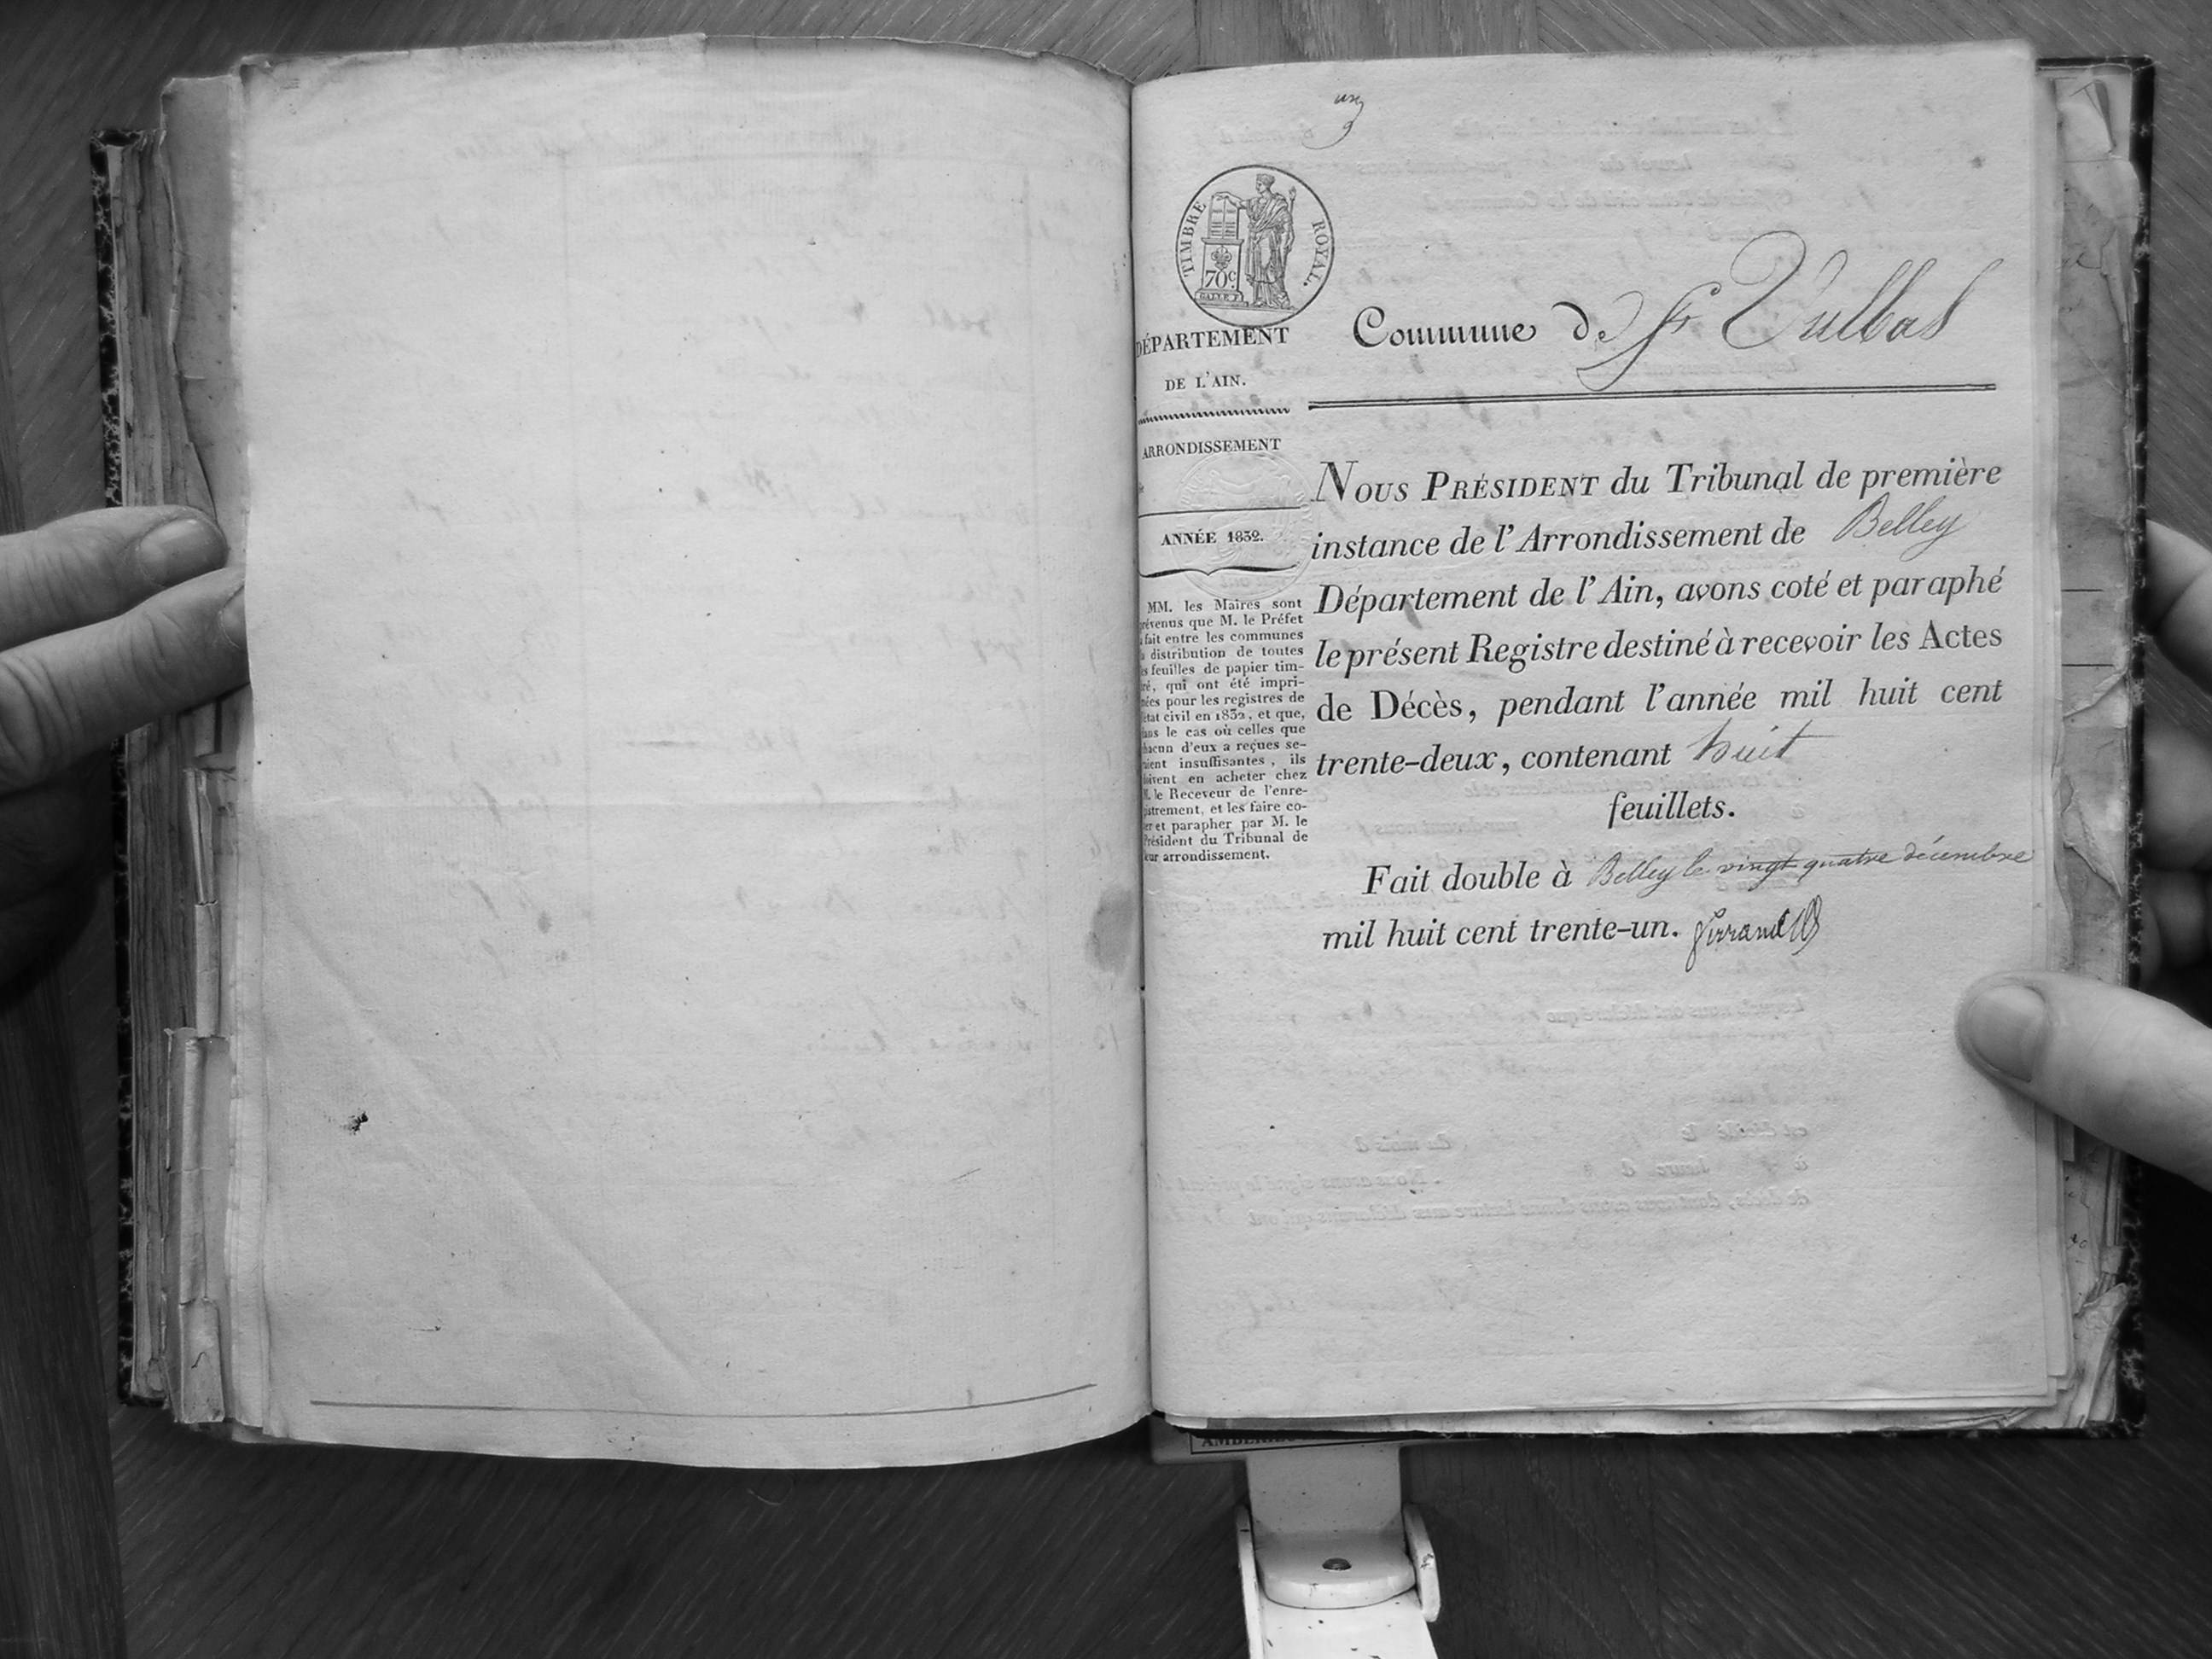 un
TIMBRE ROYAL.
70c.
GALLE F.
DÉPARTEMENT
DE L'AIN.
ARRONDISSEMENT
ANNÉE 1832.
MM. les Maires sont
prévenus que M. le Préfet
a fait entre les communes
la distribution de toutes
les feuilles de papier tim-
bré, qui ont été impri-
mées pour les registres de
l'état civil en 1832, et que,
dans le cas où celles que
chacun d'eux a reçues se-
raient insuffisantes, ils
doivent en acheter chez
M. le Receveur de l'enre-
gistrement, et les faire co-
ter et parapher par M. le
Président du Tribunal de
leur arrondissement.
Commune de St Vulbas
NOUS PRÉSIDENT du Tribunal de première
instance de l'Arrondissement de Belley
Département de l'Ain, avons coté et paraphé
le présent Registre destiné à recevoir les Actes
de Décès, pendant l'année mil huit cent
trente-deux, contenant huit
feuillets.
Fait double à Belley le vingt quatre décembre
mil huit cent trente-un.